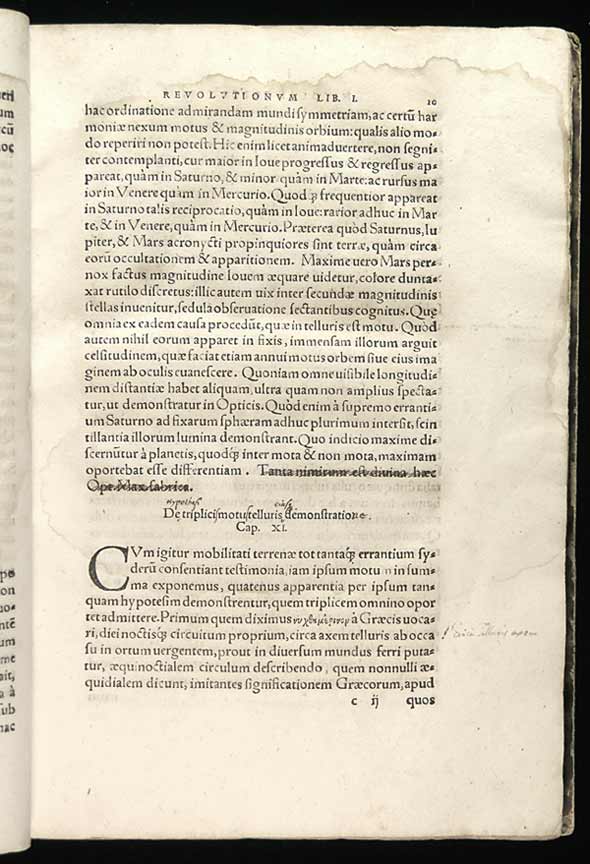 REVOLVTIONVM LIB. I. 10
hac ordinatione admirandam mundi symmetriam, ac certũ har
moniæ nexum motus & magnitudinis orbium: qualis alio mo-
do reperiri non potest. Hic enim licet animaduertere, non segni-
ter contemplanti, cur maior in Ioue progressus & regressus ap-
pareat, quàm in Saturno, & minor quàm in Marte: ac rursus ma
ior in Venere quàm in Mercurio. Quodq̃ frequentior appareat
in Saturno talis reciprocatio, quàm in Ioue: rarior adhuc in Mar
te, & in Venere, quàm in Mercurio. Præterea quòd Saturnus, Iu
piter, & Mars acronycti propinquiores sint terræ, quàm circa
eorũ occultationem & apparitionem. Maxime uero Mars per-
nox factus magnitudine Iouem æquare uidetur, colore dunta-
xat rutilo discretus: illic autem uix inter secundæ magnitudinis
stellas inuenitur, sedula obseruatione sectantibus cognitus. Quę
omnia ex eadem causa procedũt, quæ in telluris est motu. Quòd
autem nihil eorum apparet in fixis, immensam illorum arguit
celsitudinem, quæ faciat etiam annui motus orbem siue eius ima
ginem ab oculis euanescere. Quoniam omne uisibile longitudi-
nem distantiæ habet aliquam, ultra quam non amplius specta-
tur, ut demonstratur in Opticis. Quòd enim à supremo erranti-
um Saturno ad fixarum sphæram adhuc plurimum intersit, scin
tillantia illorum lumina demonstrant. Quo indicio maxime di-
scernũtur à planetis, quodq̃ inter mota & non mota, maximam
oportebat esse differentiam. Tanta nimirum est diuina hæc
Opt. Max. fabrica.
De triplici motu telluris demonstratione.
Cap. XI.
CVm igitur mobilitati terrenæ tot tantaq̃ errantium sy-
derũ consentiant testimonia, iam ipsum motum in sum-
ma exponemus, quatenus apparentia per ipsum tan-
quam hypotesim demonstrentur, quem triplicem omnino opor
tet admittere. Primum quem diximus νυχθημέρινον à Græcis uoca-
ri, diei noctisq̃ circuitum proprium, circa axem telluris ab occa
su in ortum uergentem, prout in diuersum mundus ferri puta-
tur, æquinoctialem circulum describendo, quem nonnulli æ-
quidialem dicunt, imitantes significationem Græcorum, apud
c ij quos